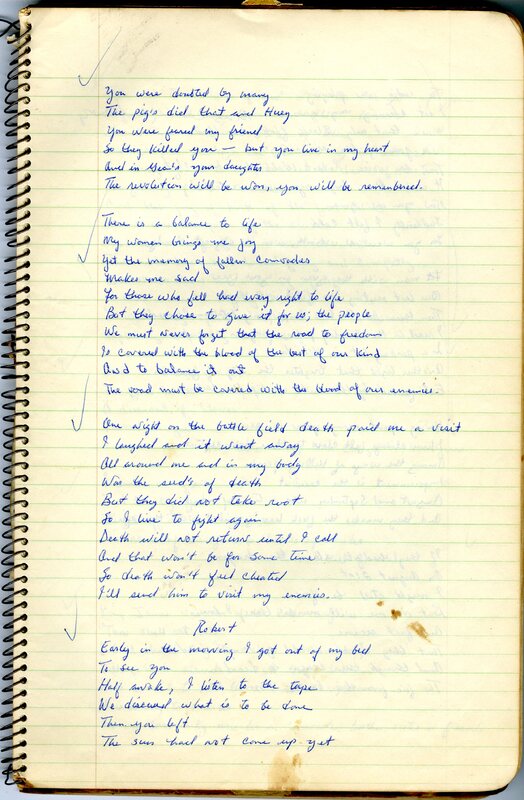 You were doubted by many
The pig's did that and Huey
You were feared my friend
So they killed you — but you live in my heart
And in your daughter
The revolution will be won, you will be remembered.
There is a balance to life
My women brings me joy
Yet the memory of fallen Comrades
Makes me sad
For those who fell had every right to life
But they chose to give it for us; the people
We must never forget that the road to freedom
Is covered with the blood of the best of our kind
And to balance it out
The road must be covered with the blood of our enemies.
One night on the battle field death paid me a visit
I laughed and it went away
All around me and in my body
Was the seed's of death
But they did not take root
So I live to fight again
Death will not return until I call
And that won't be for some time
So death won't feel cheated
I'll send him to visit my enemies.
Robert
Early in the morning I got out of my bed
To see you
Half awake, I listen to the tape
We discused what is to be done
Then you left
The sun had not come up yet